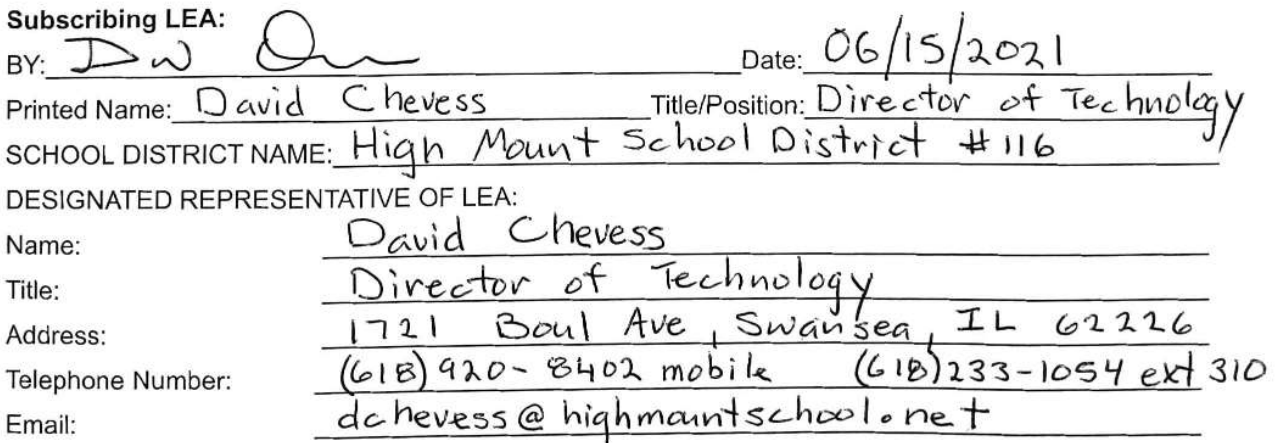 Subscribing LEA:
BY: Date: 06/15/2021
Printed Name: David Chevess Title/Position: Director of Technology
SCHOOL DISTRICT NAME: High Mount School District #116
DESIGNATED REPRESENTATIVE OF LEA:
Name: David Chevess
Title: Director of Technology
Address: 1721 Boul Ave, Swansea, IL 62226
Telephone Number: (618) 920-8402 mobile (618)233-1054 ext 310
Email: dchevess@highmountschool.net